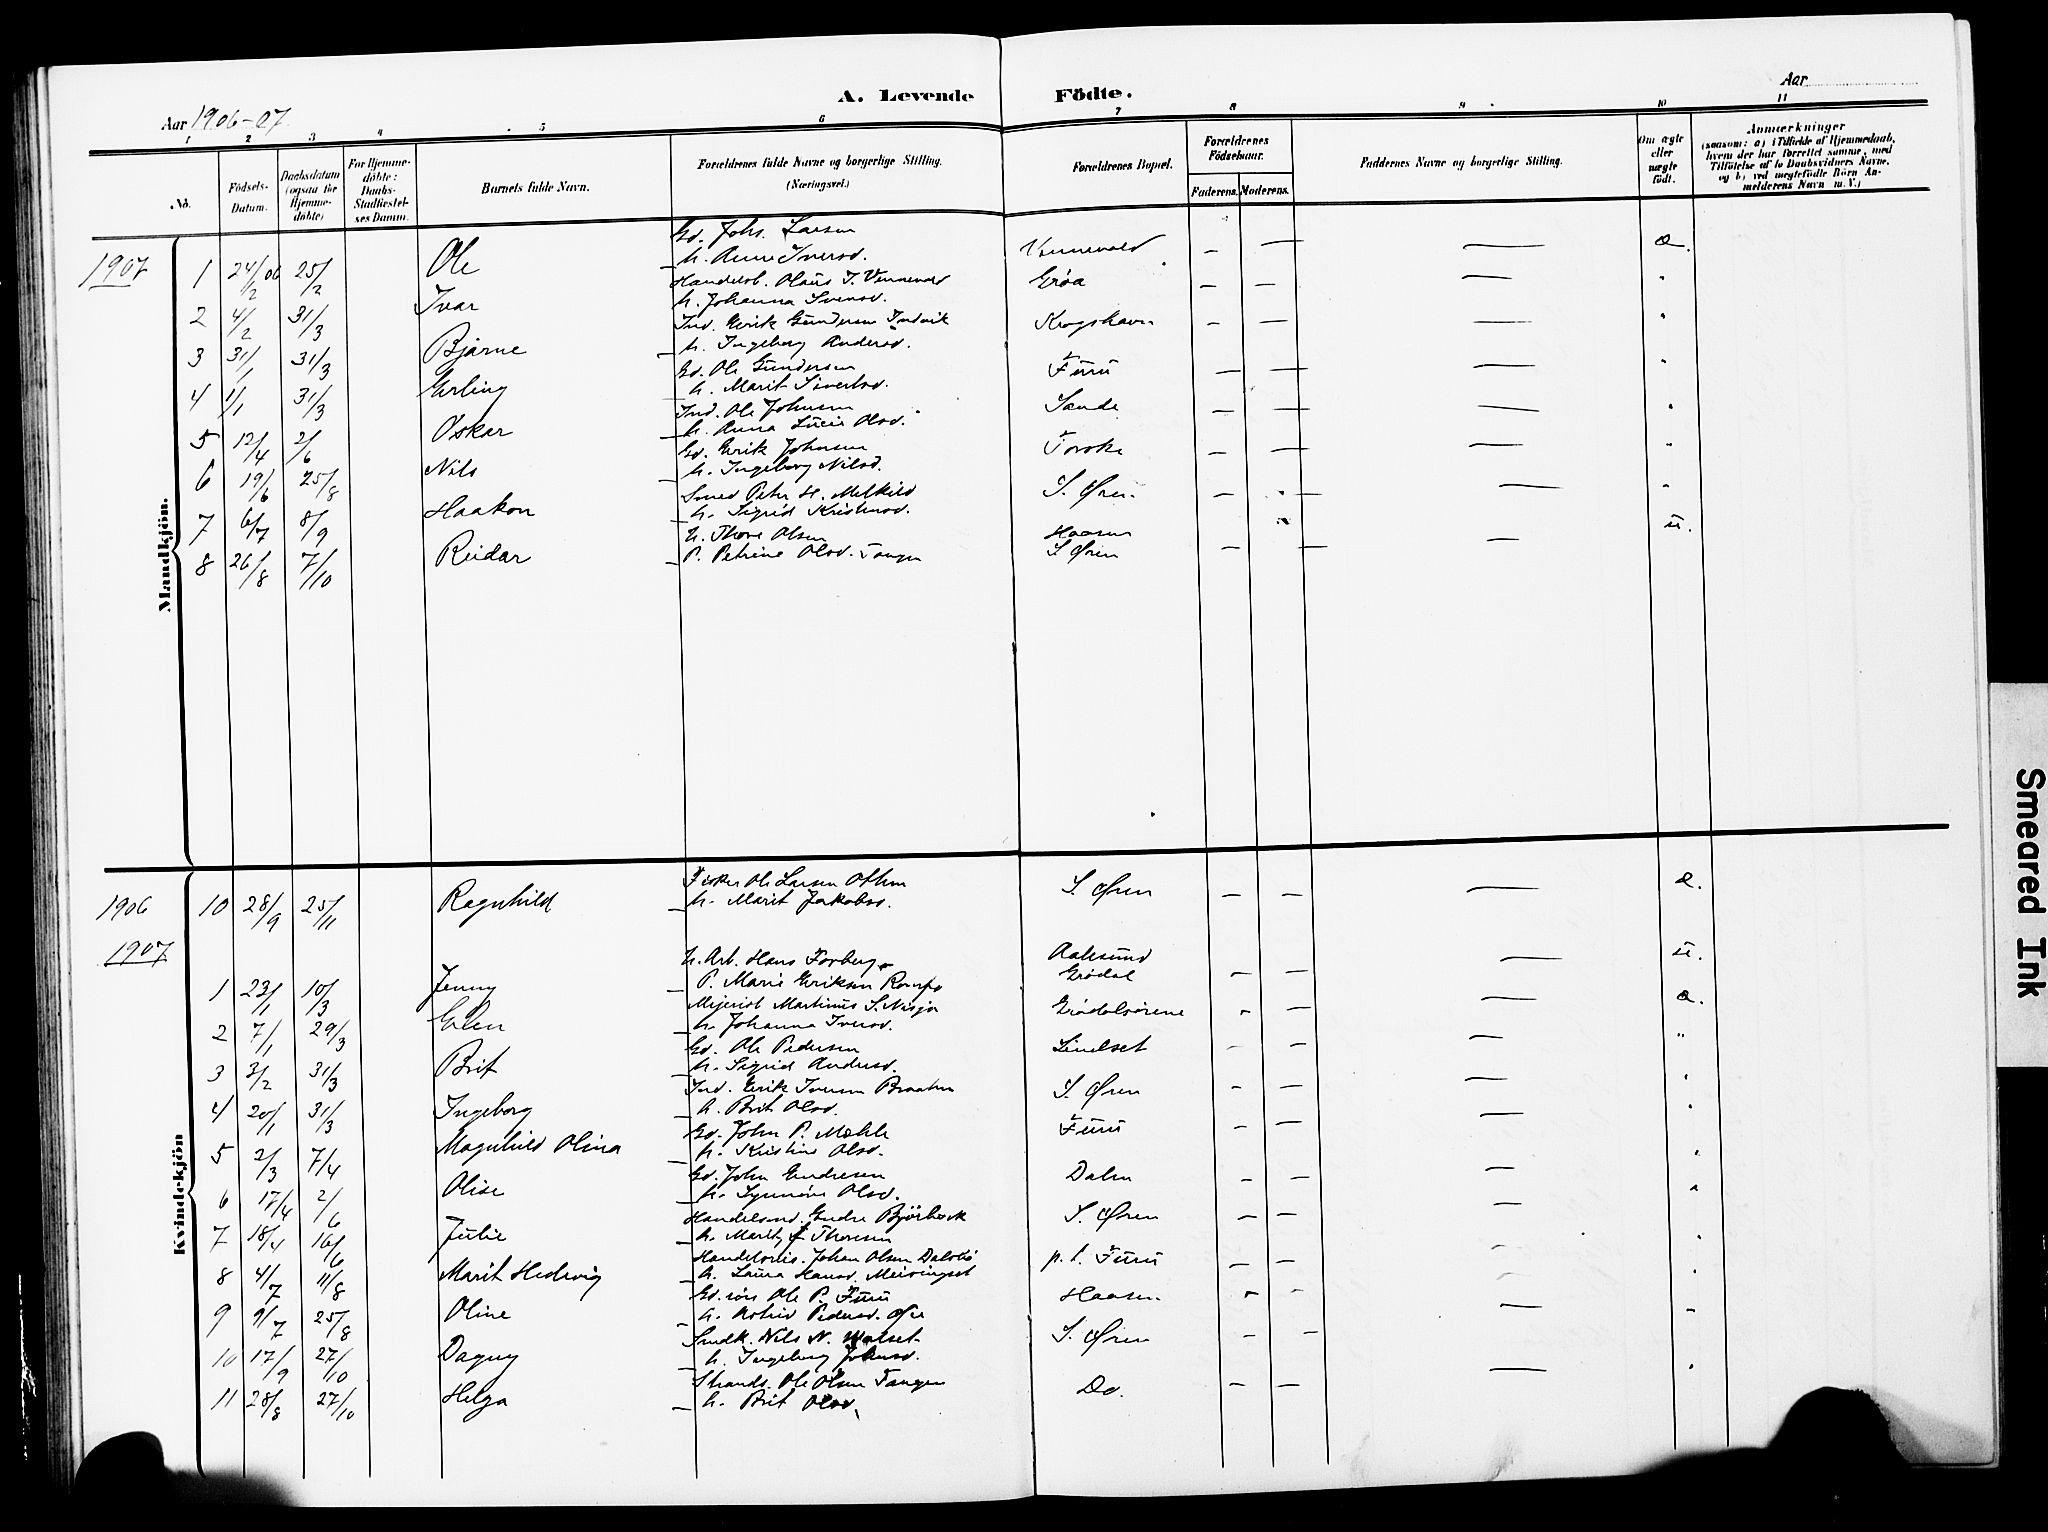 Aar 1906-07.
A. Levende Födte.
Aar
1 2 3 4 5 6 7 8 9 10 11
No.
Födsels-Datum.
Daabsdatum (ogsaa for Hjemmedöbte)
For Hjemmedöbte: Daabs-Stadfæstelses Datum.
Barnets fulde Navn.
Forældrenes fulde Navne og borgerlige Stilling. (Næringsvei.)
Forældrenes Bopæl.
Forældrenes Födselsaar.
Faderens. Moderens.
Faddernes Navne og borgerlige Stilling.
Om ægte eller uægte födt.
Anmærkninger
(saasom: a) i Tilfælde af Hjemmedaab, hvem der har forrettet samme, med Tilföielse af to Daabsvidners Navne, og b) ved uægtefödte Börn Anmelderens Navn m. V.)
Mandkjön.
1907
1 24/12 06 25/2 Ole Gd. Johs. Larsen Vennevold — — — æ.
h. Anne Iversd.
2 4/2 31/3 Ivar Handelsb. Olaus I. Vennevold Grøa — — — "
h. Johanna Svensd.
3 31/1 31/3 Bjarne Ind. Erik Gundersen Indvik Krogshavn — — — "
h. Ingeborg Andersd.
4 1/1 31/3 Erling Gd. Ole Gundersen Furu — — — "
h. Marit Sivertsd.
5 12/4 2/6 Oskar Ind. Ole Johnsen Sande — — — "
h. Anna Lucie Olsd.
6 19/6 25/8 Nils Gd. Erik Johnsen Torske — — — "
h. Ingeborg Nilsd.
7 6/7 8/9 Haakon Smed Peter H. Melkild S. Øren — — — "
h. Sigrid Kristensd.
8 26/8 7/10 Reidar U. Thore Olsen Haasen — — — u.
P. Petrine Olsd. Tangen S Øren
Kvindekjön
1906
10 28/9 25/11 Ragnhild Fisker Ole Larsen Othen S. Øren — — — æ.
h. Marit Jakobsd.
1907
1 23/1 10/3 Jenny U. Arb. Hans Forberg Aalesund — — — u.
P. Marie Eriksen Romfo Grødal
2 7/1 29/3 Ellen Mejerist Martinus S. Nisja Grødalsørene — — — æ.
h. Johanna Iversd.
3 3/2 31/3 Brit Gd. Ole Pedersen Linelset — — — "
h. Sigrid Andersd.
4 20/1 31/3 Ingeborg Ind. Erik Iversen Braaten S. Øren — — — "
h. Brit Olsd.
5 2/3 7/4 Magnhild Olina Gd. John P. Mæhle Furu — — — "
h. Kristine Olsd.
6 17/4 2/6 Olise Gd. John Endresen Dalen — — — "
h. Synnøve Olsd.
7 18/4 16/6 Julie Handelsmd. Endre Bjørbæk S. Øren — — — "
h. Marit f Thoresen
8 4/7 11/8 Marit Hedevig Johan Olsen p. t. Furu — — — "
h. Laura Hansd. Meisingset
9 9/7 25/8 Oline Gd. søn Ole P. Furu Haasen — — — "
h. Astrid Pedersd. Øre
10 17/9 27/10 Dagny Smdk. Nils N. S. Øren — — — "
h. Ingeborg Johnsd.
11 28/8 27/10 Helga Strands. Ole Olsen Tangen Do. — — — "
h. Brit Olsd.
Smeared Ink